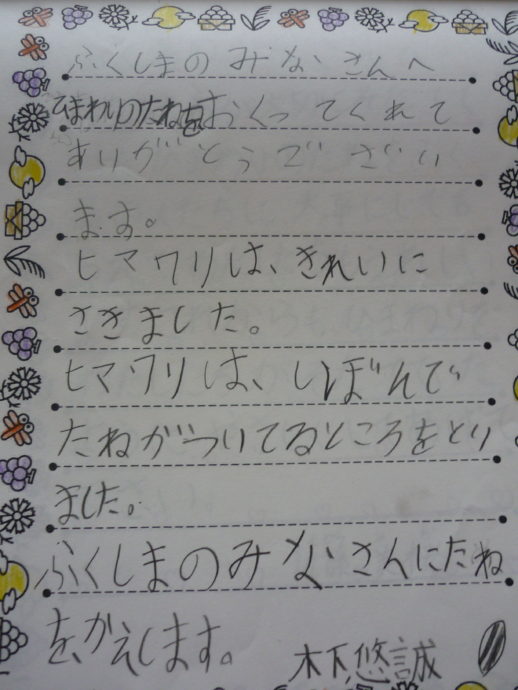 ふくしまのみなさんへ
ひまわりのたねをおくってくれて
ありがとうござい
ます。
ヒマワリは、きれいに
さきました。
ヒマワリは、しぼんで
たねがついてるところをとり
ました。
ふくしまのみなさんにたね
を、かえします。 木下悠誠